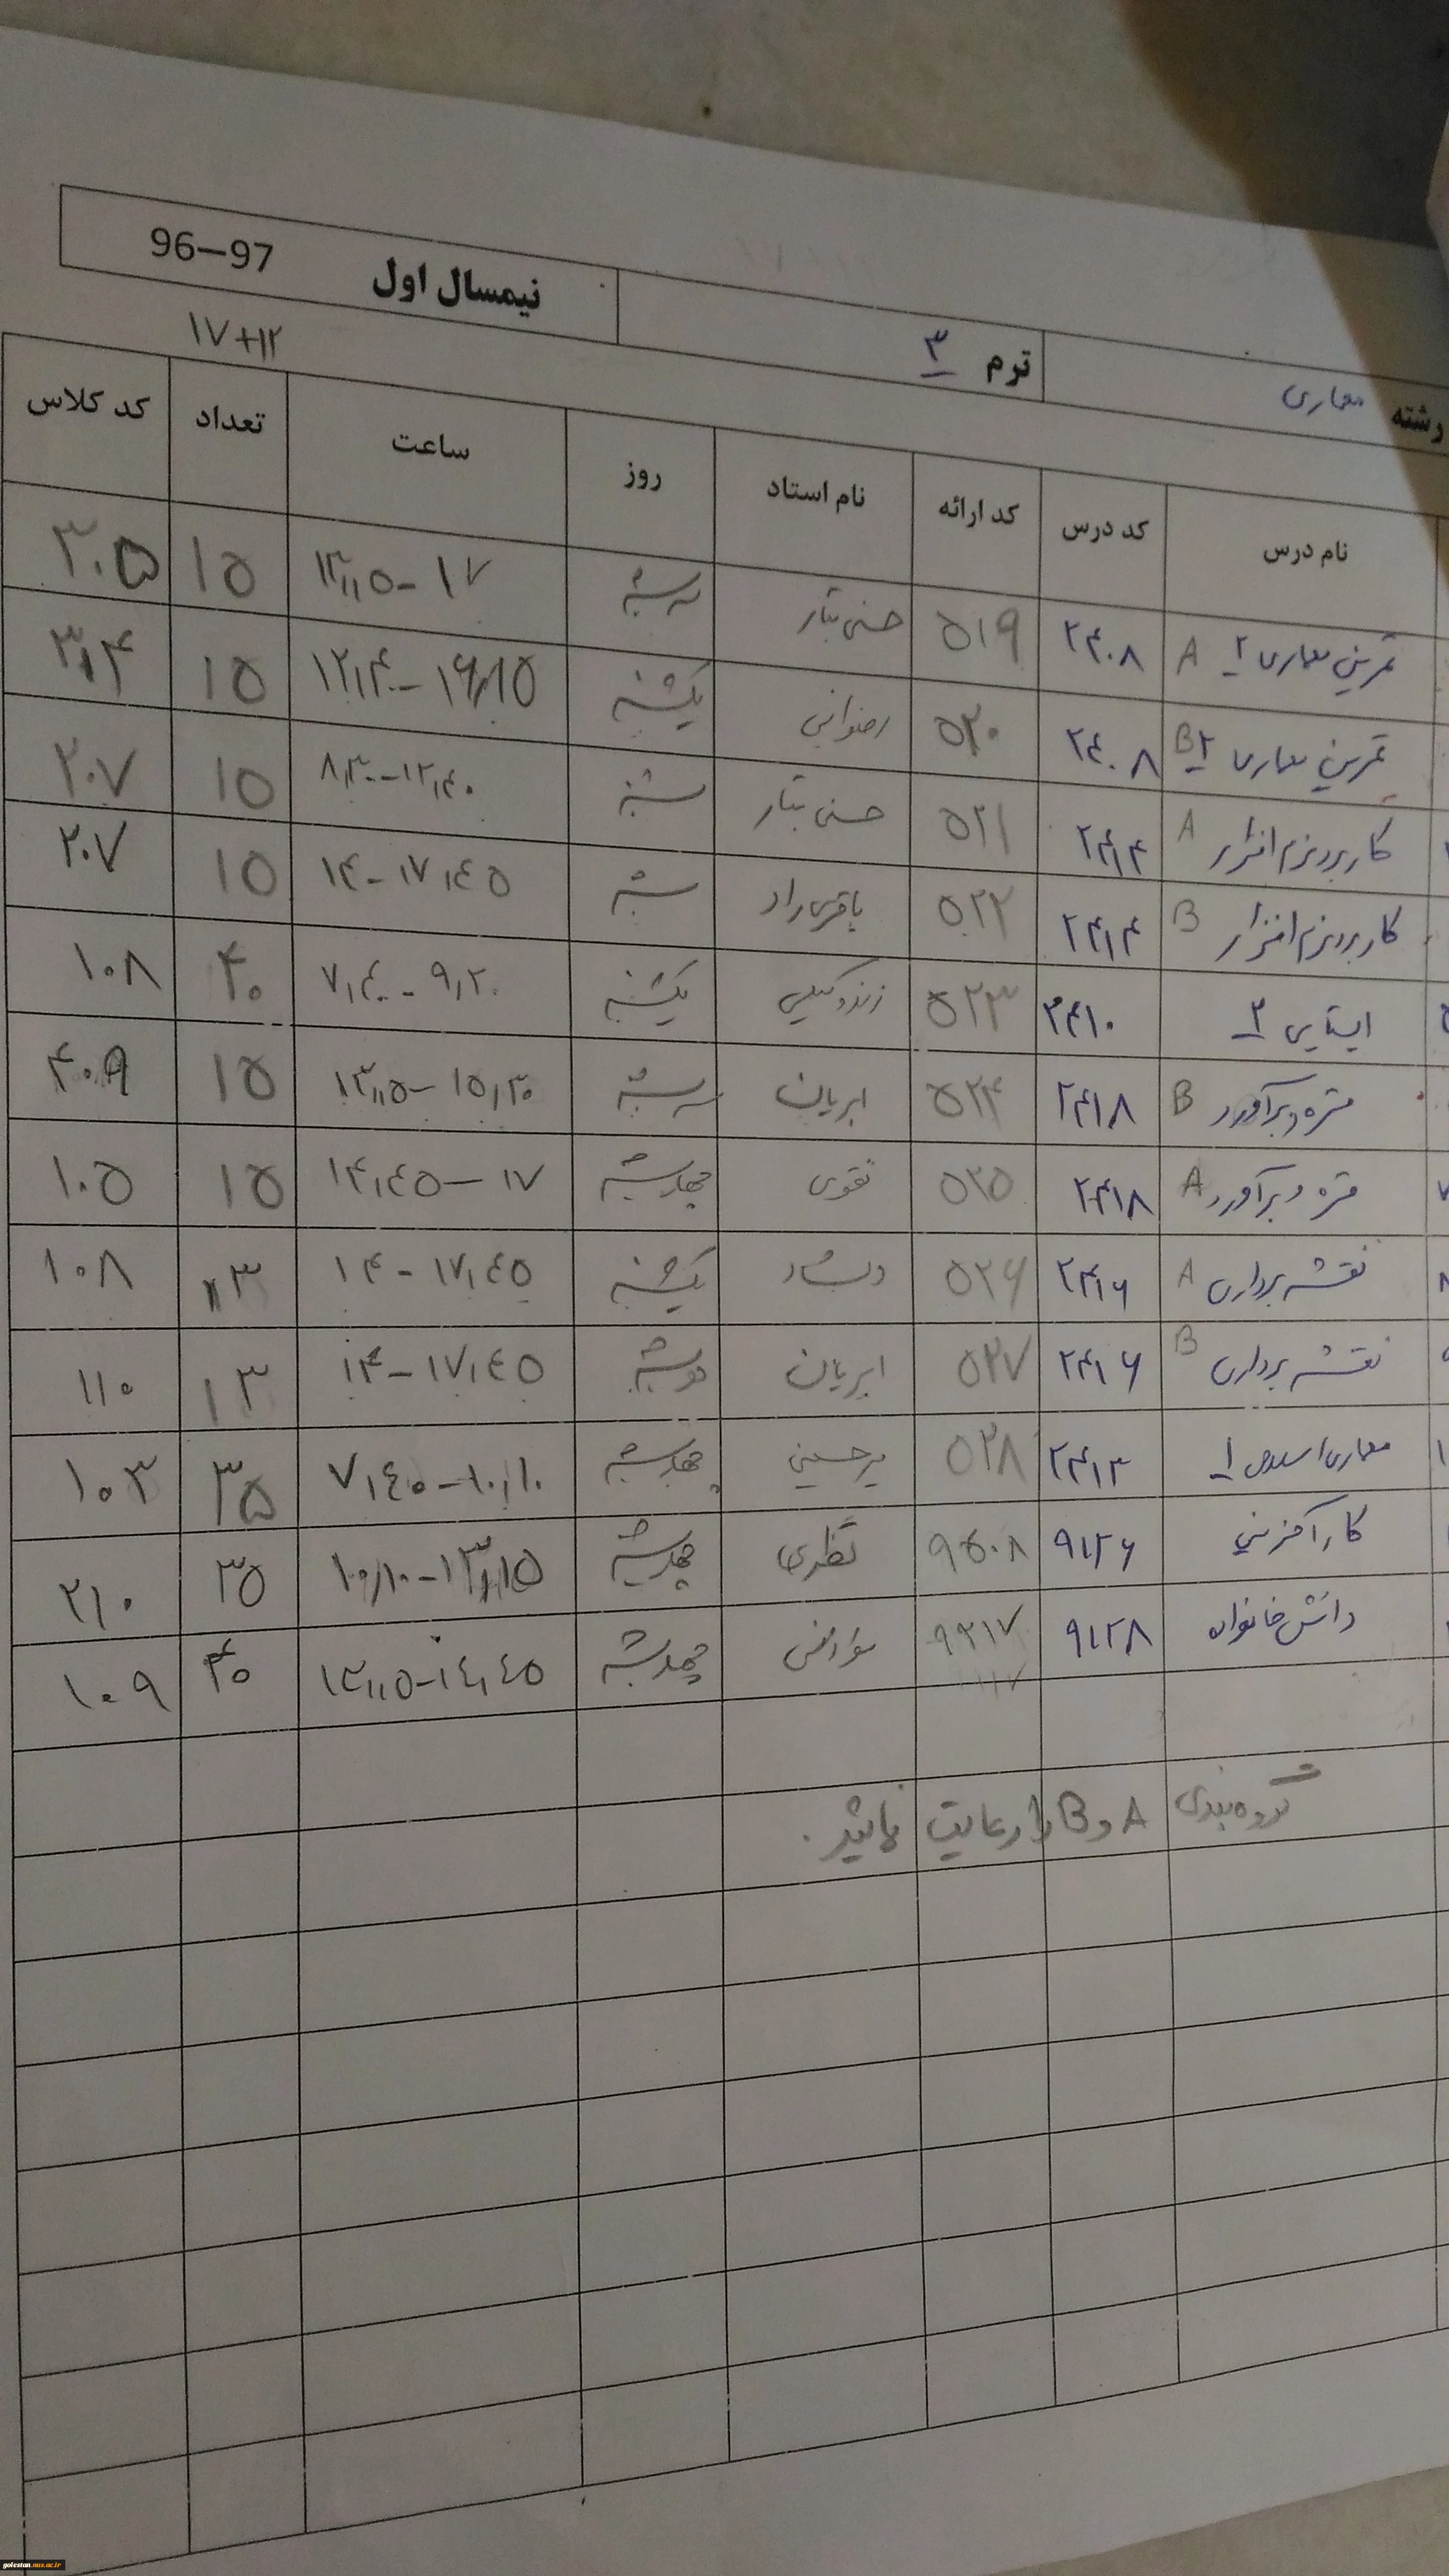 نیمسال اول 96–97
ترم ۳
رشته معماری
۱۷+۱۲
نام درس کد درس کد ارائه نام استاد روز ساعت تعداد کد کلاس
تمرین معماری ۲ A ۲۴۰۸ ۵۱۹ حسنی تبار سه شنبه ۱۳,۱۵-۱۷ ۱۵ ۳۰۵
تمرین معماری ۲ B ۲۴۰۸ ۵۲۰ رضوانی یکشنبه ۱۲,۴۰-۱۶,۱۵ ۱۵
کاربرد نرم افزار A ۲۴۱۴ ۵۲۱ حسنی تبار شنبه ۸,۳۰-۱۲,۴۰ ۱۵ ۲۰۷
کاربرد نرم افزار B ۲۴۱۴ ۵۲۲ باقری راد شنبه ۱۴-۱۷,۴۵ ۱۵ ۲۰۷
ایستایی ۲ ۲۴۱۰ ۵۲۳ یکشنبه ۷,۴۰-۹,۲۰ ۴۰ ۱۰۸
متره و برآورد B ۲۴۱۸ ۵۲۴ ابریان سه شنبه ۱۳,۱۵-۱۵,۳۰ ۱۵ ۴۰۹
متره و برآورد A ۲۴۱۸ ۵۲۵ نقوی چهارشنبه ۱۴,۴۵-۱۷ ۱۵ ۱۰۵
نقشه برداری A ۲۴۱۶ ۵۲۶ دلشاد یکشنبه ۱۴-۱۷,۴۵ ۱۳ ۱۰۸
نقشه برداری B ۲۴۱۶ ۵۲۷ ابریان دوشنبه ۱۴-۱۷,۴۵ ۱۳ ۱۱۰
معماری اسلامی ۱ ۲۴۱۲ ۵۲۸ میرحسینی چهارشنبه ۷,۴۰-۱۰,۱۰ ۳۵ ۱۰۳
کارآفرینی ۹۱۲۶ ۹۵۰۸ نظری چهارشنبه ۱۰,۱۰-۱۳,۱۵ ۳۵ ۲۱۰
دانش خانواده ۹۱۲۸ ۹۲۱۷ چهارشنبه ۱۳,۱۵-۱۴,۴۵ ۴۰ ۱۰۹
گروه بندی A و B را رعایت نمائید.
golestan.nus.ac.ir